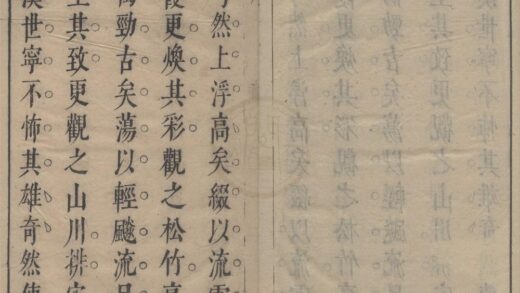 然上浮高矣綴以流
更煥其彩觀之松竹高
勁古矣蕩以輕飈流
其致更觀之山川排
漢世寧不怖其雄奇然使